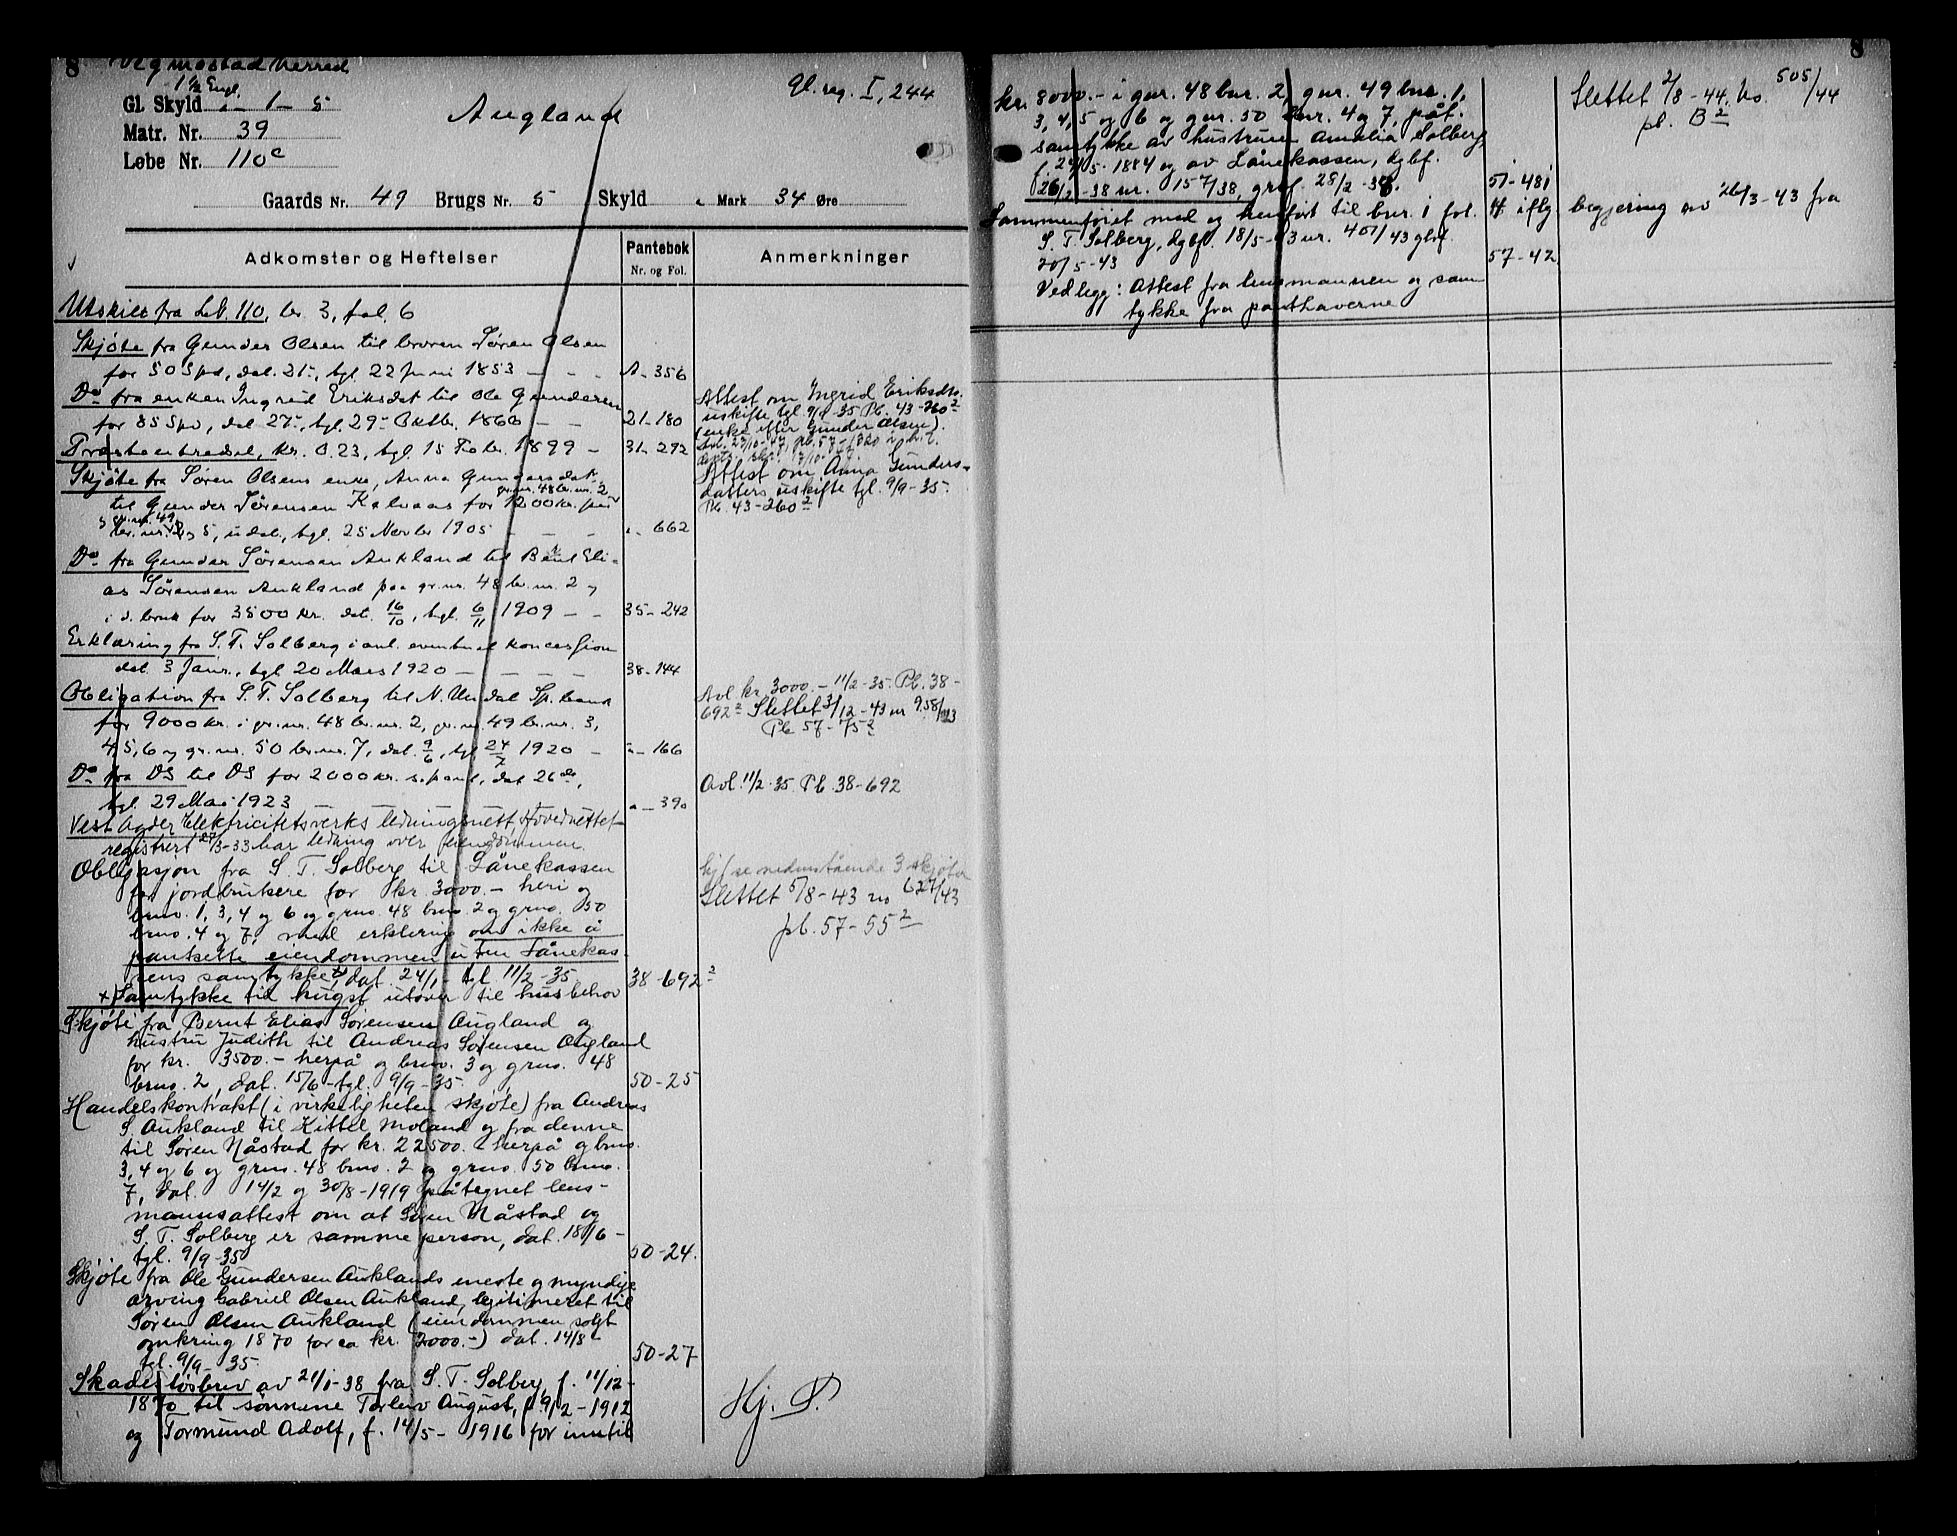 8 Vegmostad Herred
1 1/2 Engl.
Gl. Skyld " - 1 - 5
Matr. Nr. 39
Løbe Nr. 110 c
Augland
Gl. reg. I, 244
Gaards Nr. 49 Brugs Nr. 5 Skyld " Mark 34 Øre
Adkomster og Heftelser
Pantebok
Nr. og Fol.
Anmerkninger
Utskilt fra L.N. 110, br. 3, fol. 6
Skjøte fra Gunder Olsen til broren Søren Olsen
for 50 Spd, dat. 21-, tgl. 22 Juni 1853 - - - A-356
Do fra enken Ingrid Eriksdt til Ole Gundersen
for 85 Spd, dat 27-, tgl. 29- Oktb. 1866 - - 21-180
Attest om Ingrid Eriksdtr.
uskifte tgl. 9/9-35 Pb. 43-260²
(enke efter Gunder Olsen).
Præsteenkesæd, kr. 0.23, tgl. 15 Febr. 1899 - 31-292
Skjøte fra Søren Olsens enke, Anna Gundersdat.
til Gunder Sørensen Kalvaas for 1200 kr. paa
gr.nr. 48 br.nr. 2
gr.nr. 49
br.nr. 3 og 5, udat., tgl. 25 Novbr 1905 - - - "- 662
Attest om Anna Gunders-
datters uskifte tgl. 9/9-35.
Pb. 43-260²
Do fra Gunder Sørensen Aukland til Bernt Eli-
as Sørensen Aukland paa gr.nr. 48 br.nr. 2 og
i d. bruk for 3500 kr. dat. 16/10, tgl. 6/11 1909 - - 35-242
Erklæring fra S. T. Solberg i anl. eventuel koncession
dat. 3 Janr., tgl 20 Mars 1920 - - - - 38-144
Obligation fra S. T. Solberg til N. Undal Sp. bank
for 9000 kr. i gr.nr. 48 br.nr. 2, gr.nr 49 br.nr. 3,
4, 5, 6 og gr.nr. 50 br.nr. 7, dat. 9/6, tgl 24/7 1920 - "- 166
Avl kr. 3000.- 11/2-35. Pb. 38-
692² Slettet 31/12-43 nr 958/43
Pb 57-75²
Do fra DS til DS for 2000 kr. s. pant, dat 26de,
tgl. 29 Mai 1923 "- 390
Avl. 11/2-35. Pb. 38-692
Vest Agder Elektricitetsverks ledningsnett, Hovednettet
registrert 27/3-33 har ledning over eiendommen.
Obligasjon fra S. T. Solberg til Lånekassen
for jordbrukere for kr 3000.- heri og
brno. 1, 3, 4 og 6 og grno. 48 brno. 2 og grno. 50
brno. 4 og 7, med erklering om ikke å
pantsette eiendommen uten Lånekas-
sens samtykke x), dat. 24/1- tgl 11/2-35. 38-692²
x Samtykke til hugst utover til husbehov
hj/se nedenstående 3 skjøter
Slettet 5/8-43 no 627/43
pb. 57-55²
Skjøte fra Bernt Elias Sørensen Augland og
hustru Judith til Andreas Sørensen Augland
for kr. 3500.- herpå og brno. 3 og grno. 48
brno. 2, dat. 15/6- tgl. 9/9-35. 50-25
Handelskontrakt (i virkeligheten skjøte) fra Andreas
S. Aukland til Kittel Moland og fra denne
til Søren Nåstad for kr. 22500.- herpå og brno.
3, 4 og 6 og grno. 48 brno. 2 og grno. 50 brno.
7, dat. 14/2 og 30/8-1919 påtegnet lens-
mannsattest om at Søren Nåstad og
S. T. Solberg er samme person, dat. 18/6-
tgl. 9/9-35 50-24.
Skjøte fra Ole Gundersen Auklands eneste og myndige
arving Gabriel Olsen Aukland, legitimeret til
Søren Olsen Aukland (eiendommen solgt
omkring 1870 for ca kr. 2000.-) dat. 14/8-
tgl. 9/9-35. 50-27
Skadesløsbrev av 21/1-38 fra S. T. Solberg, f. 11/12-
1870 til sønnene Torleiv August, f. 9/2-1912
og Tormund Adolf, f. 14/5-1916 for inntil
Hj. S.
8
kr. 8000.- i gnr. 48 bnr. 2, gnr. 49 bnr. 1,
3, 4, 5 og 6 og gnr. 50 bnr. 4 og 7, påt.
samtykke av hustruen Amalia Solberg,
f. 24/5-1884 og av Lånekassen, dgbf.
26/2-38 nr. 157/38, grbf. 28/2-38. 51-481
Slettet 2/8-44. no. 505/44
pb. B²
Sammenføiet med og henført til bnr. 1 fol. 4 iflg. begjering av 26/3-43 fra
S. T. Solberg, dgbf. 18/5-43 nr. 401/43 gbf.
20/5-43 57-42
Vedlegg: Attest fra lensmannen og sam
tykke fra panthaverne